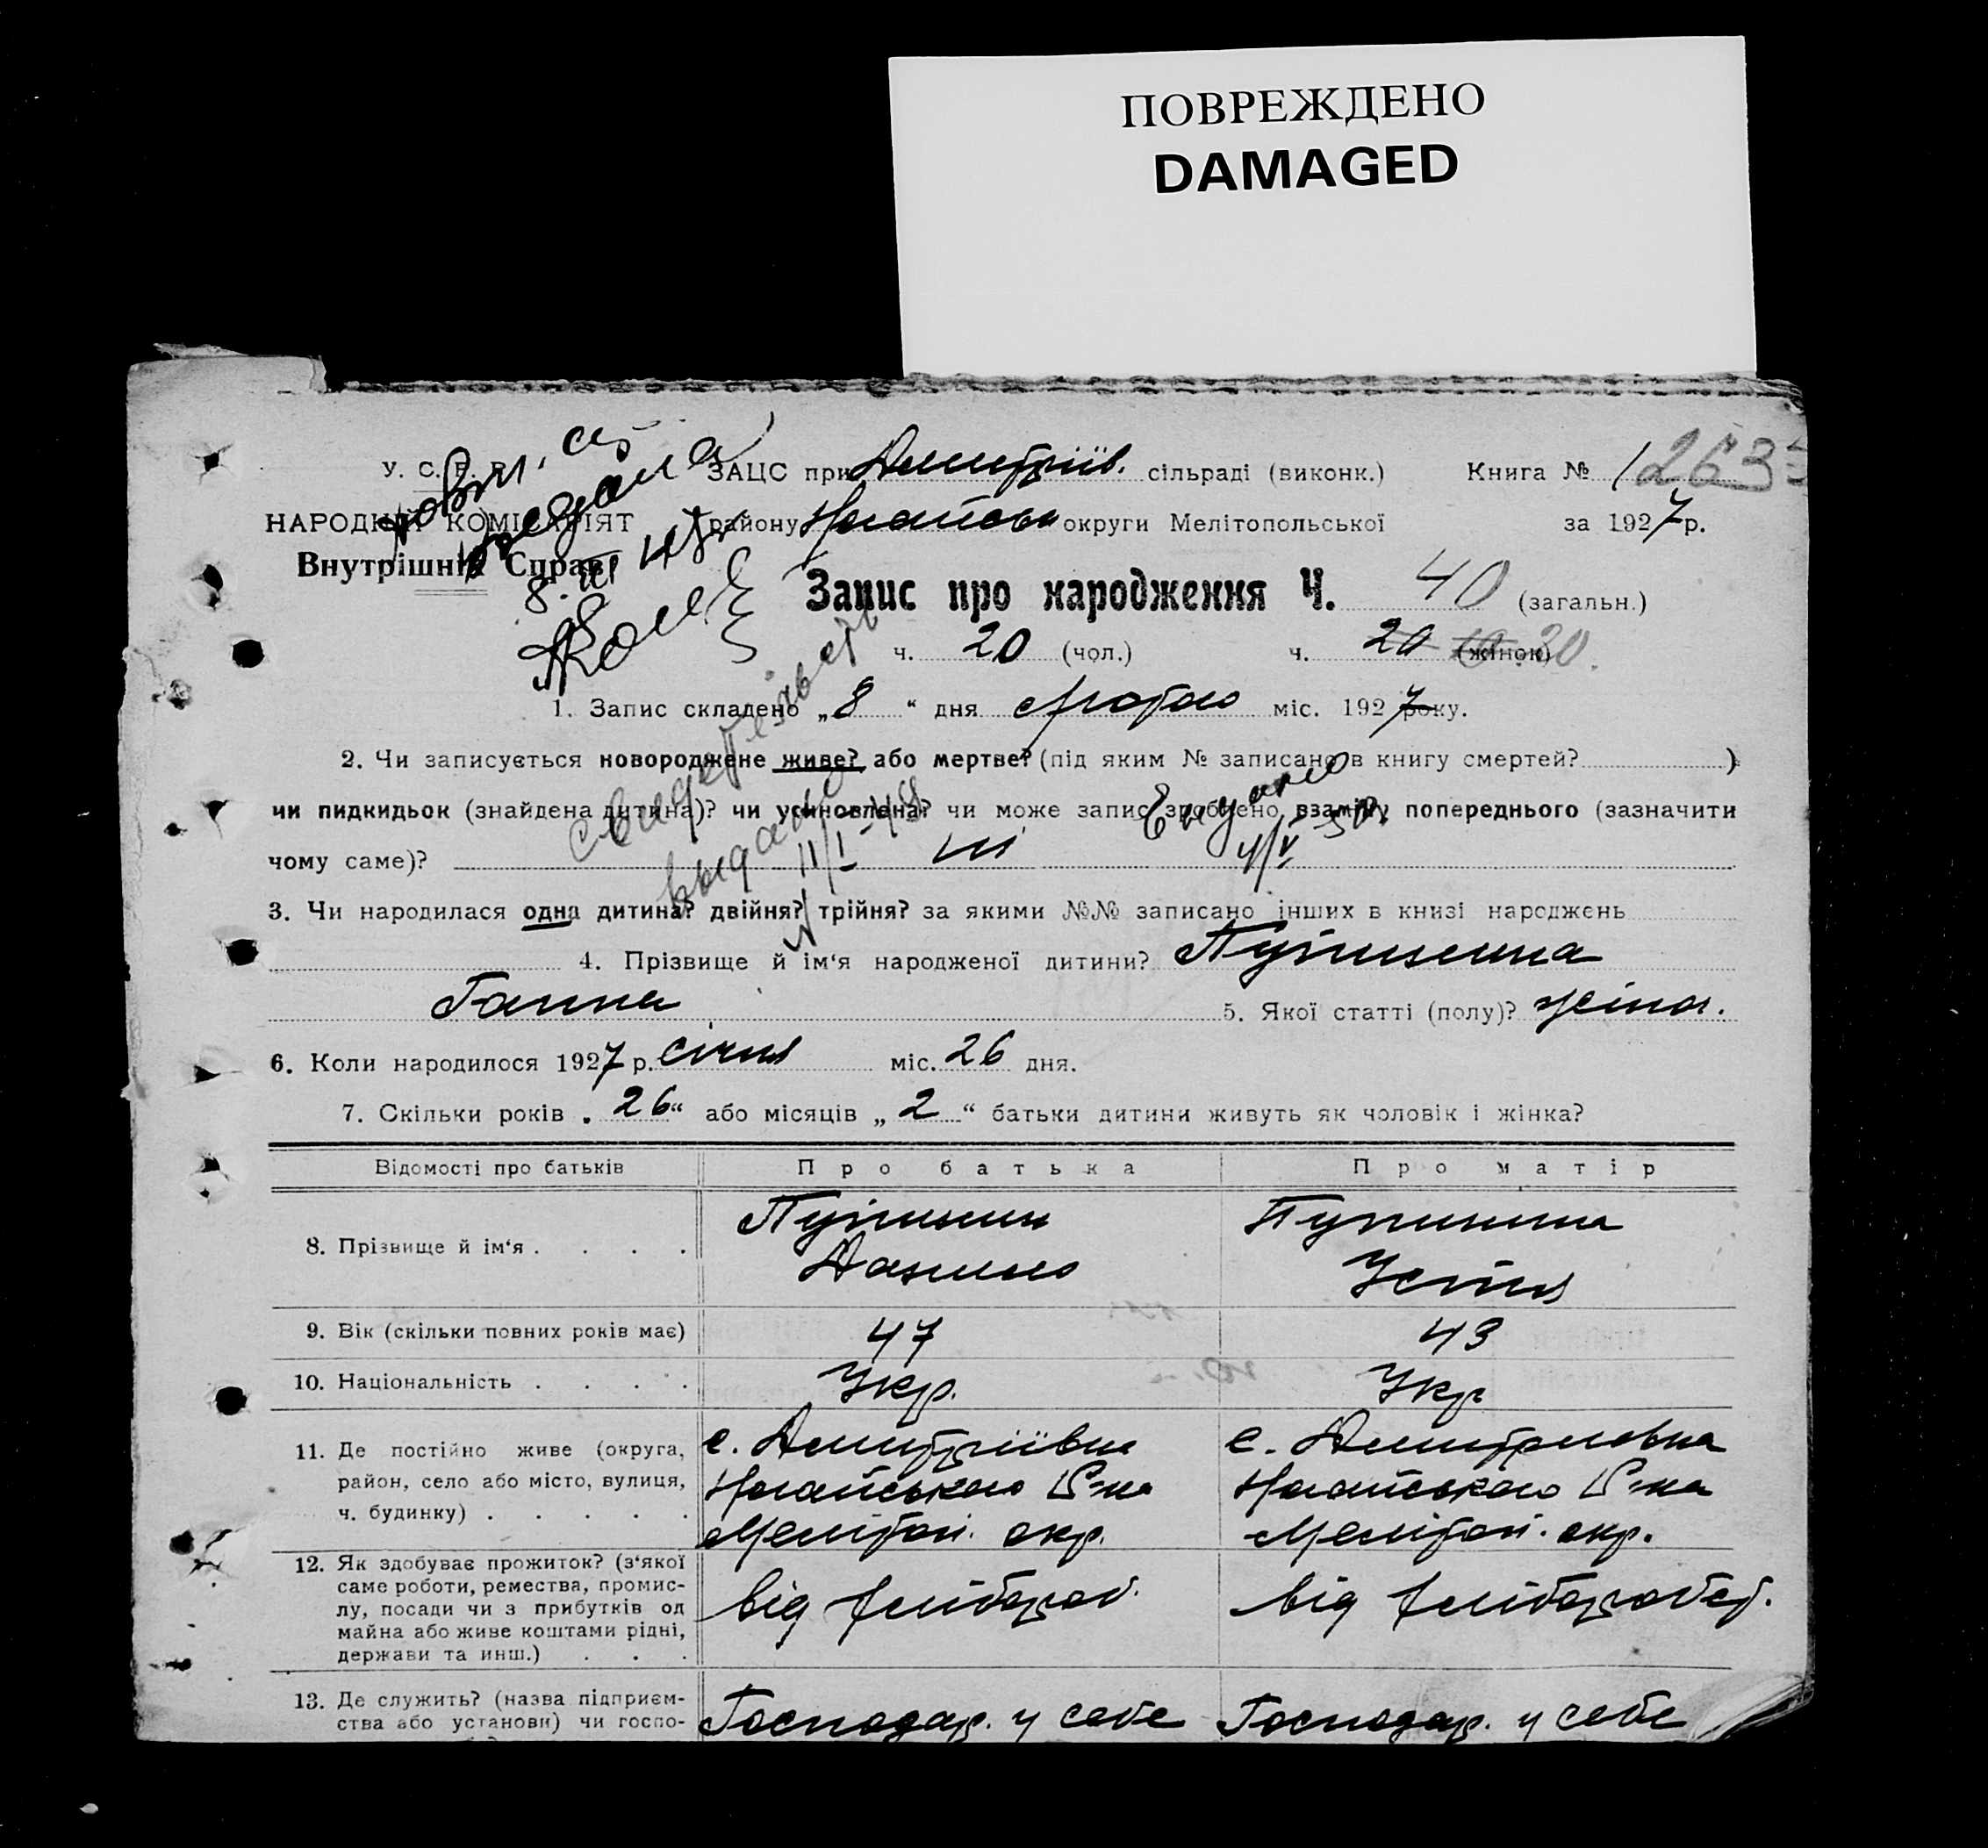 ПОВРЕЖДЕНО
DAMAGED
У. С. Р. Р.
НАРОДНИЙ КОМІСАРІЯТ
Внутрішніх Справ
ЗАЦС при Дмитріїв. сільраді (виконк.) Книга № 1 263
району Ногайськ округи Мелітопольської за 1927 р.
Запис про народження Ч. 40 (загальн.)
ч. 20 (чол.) ч. 20 (жінок)
1. Запис складено „8“ дня лютого міс. 1927 року.
2. Чи записується новороджене живе? або мертве? (під яким № записано в книгу смертей? )
чи пидкидьок (знайдена дитина)? чи усиновлена? чи може запис зроблено взаміну попереднього (зазначити
чому саме)? ні
свидетельст
выдано
11/I-48
3. Чи народилася одна дитина? двійня? трійня? за якими №№ записано інших в книзі народжень
4. Прізвище й ім‘я народженої дитини? Пупинина
Ганна 5. Якої статті (полу)? жіноч.
6. Коли народилося 1927 р. січня міс. 26 дня.
7. Скільки років „26“ або місяців „2“ батьки дитини живуть як чоловік і жінка?
Відомості про батьків Про батька Про матір
8. Прізвище й ім‘я . . . . Пупинин Пупинина
Данило Устя
9. Вік (скільки повних років має) 47 43
10. Національність . . . . Укр. Укр
11. Де постійно живе (округа, с. Дмитріївка с. Дмитрієвка
район, село або місто, вулиця, Ногайського Р-на Ногайського Р-на
ч. будинку) . . . . . Меліт оп. окр. Мелітоп. окр.
12. Як здобуває прожиток? (з‘якої
саме роботи, ремества, промис-
лу, посади чи з прибутків од від хлібороб. від хлібороб.
майна або живе коштами рідні,
держави та инш.) . . .
13. Де служить? (назва підприєм-
ства або установи) чи госпо- Господар. у себе Господар. у себе